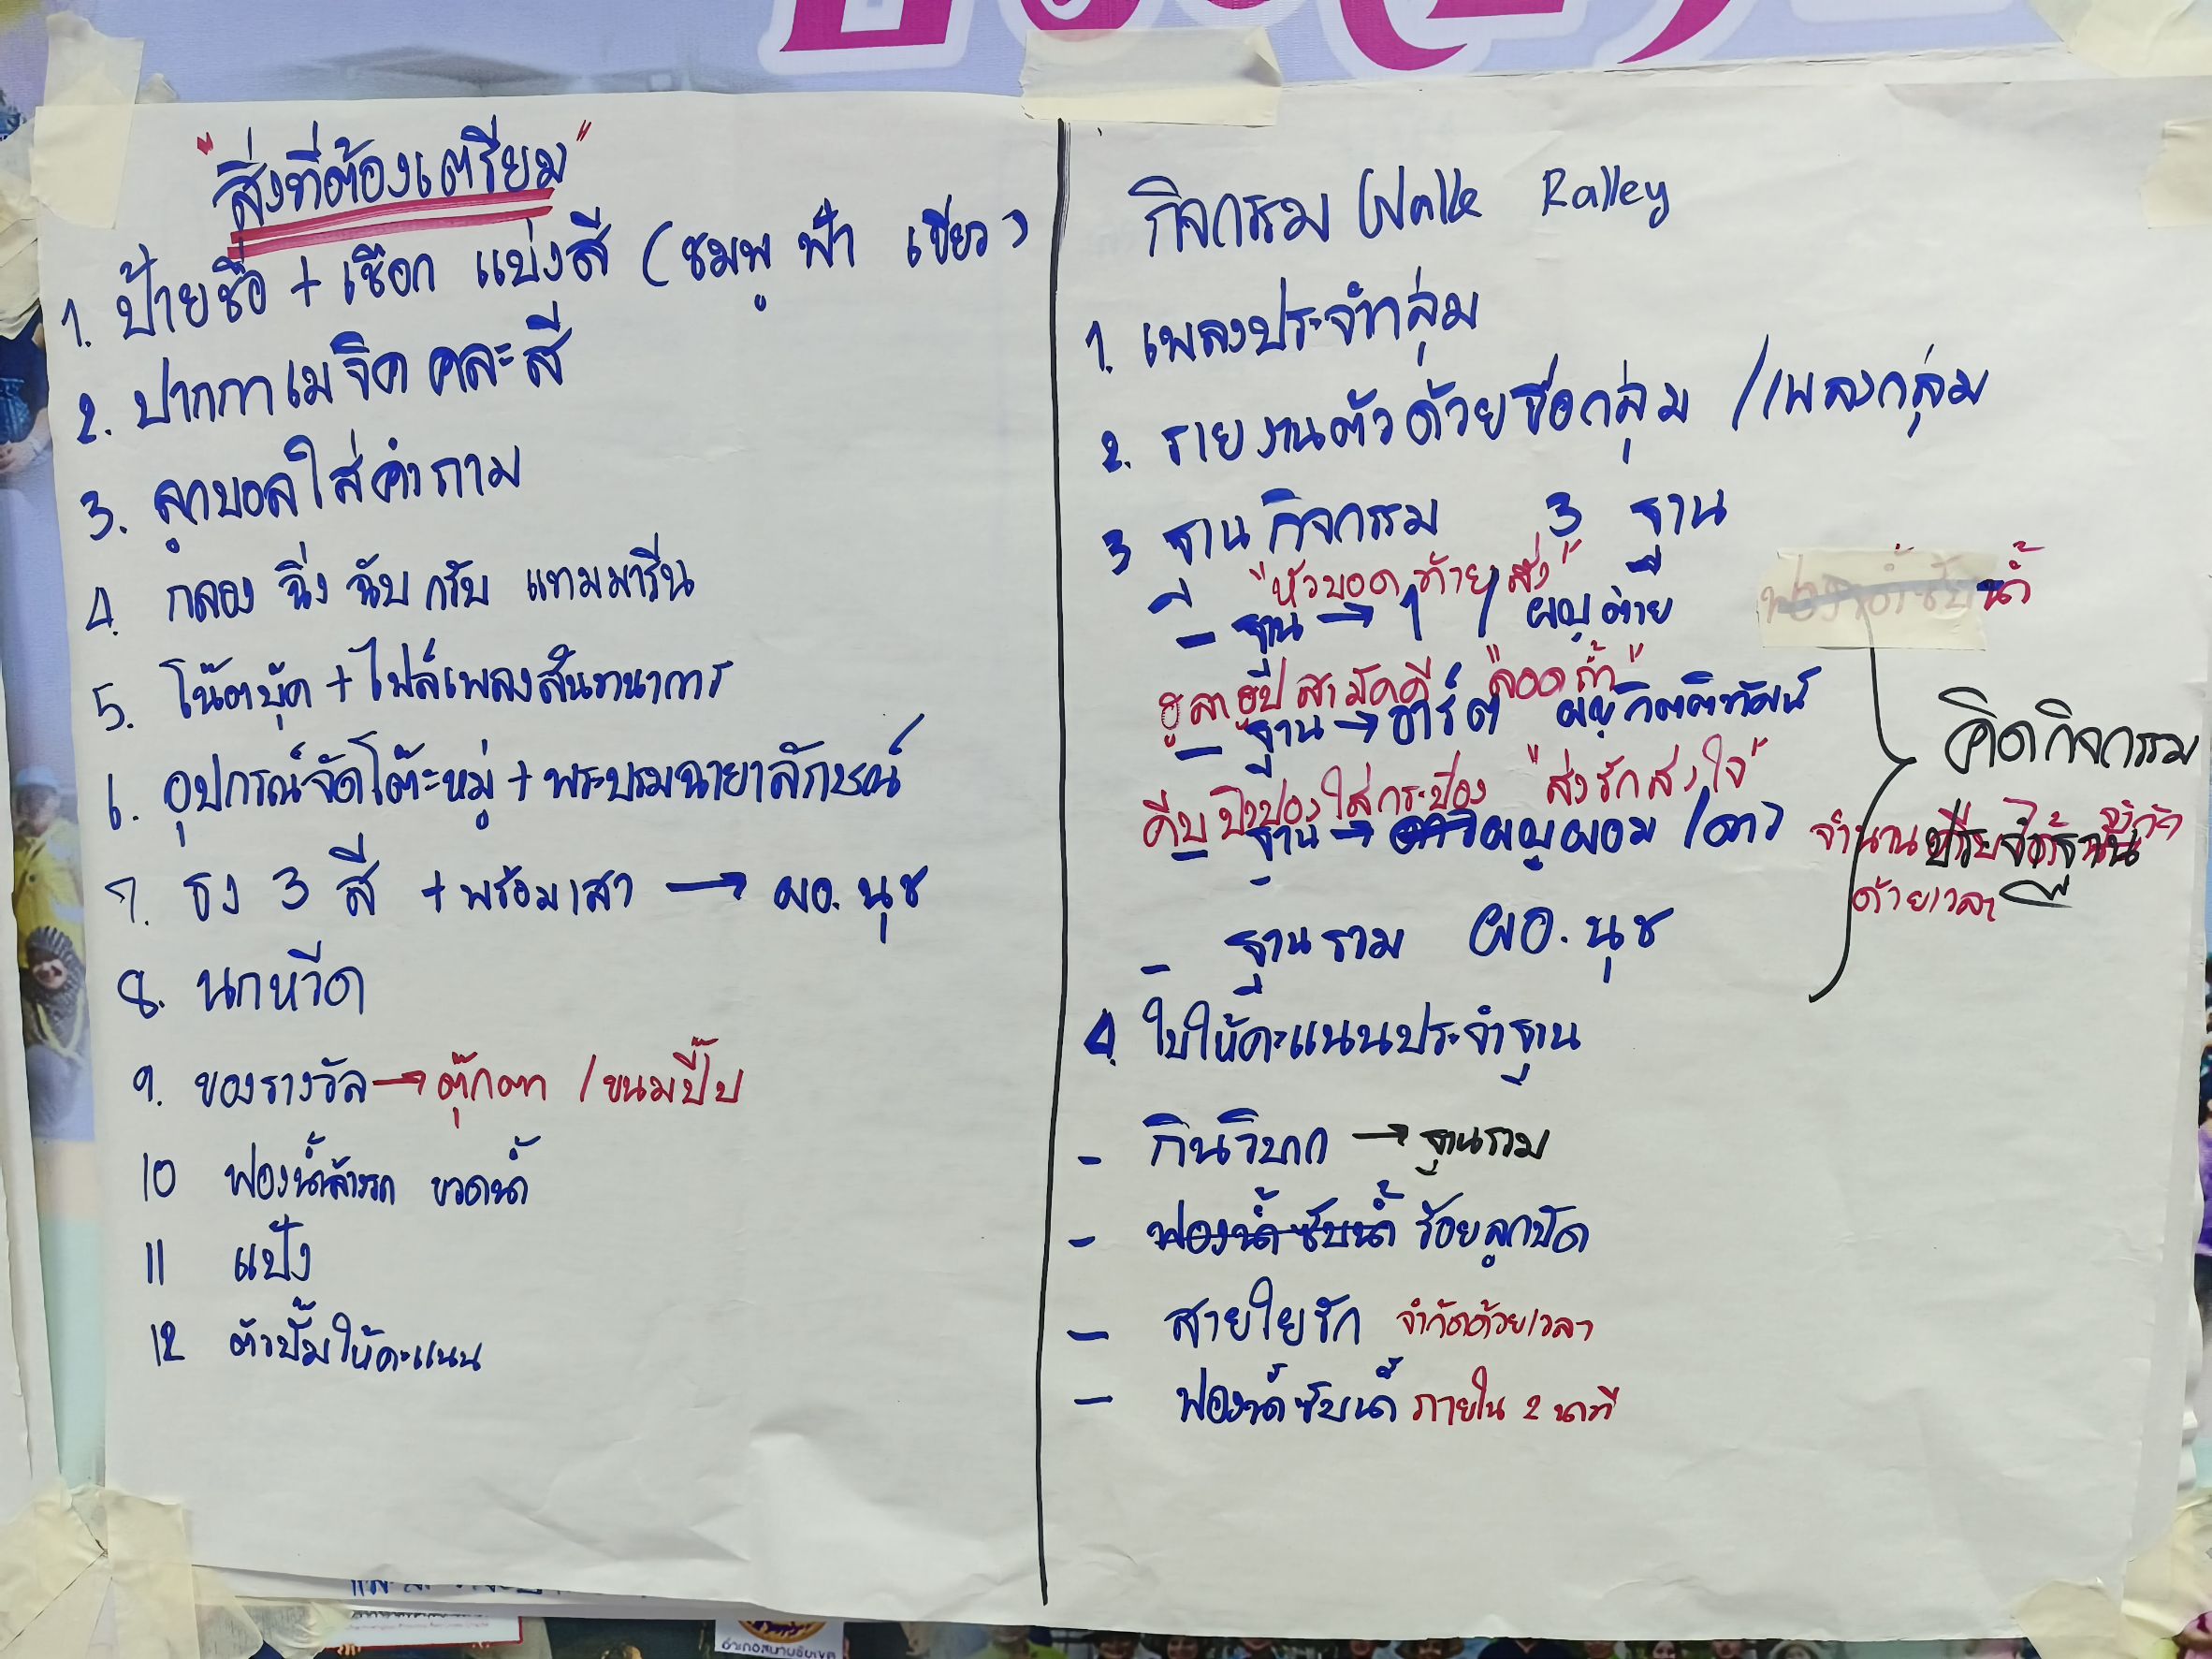 "สิ่งที่ต้องเตรียม"
1. ป้ายชื่อ + เชือก แบ่งสี (ชมพู ฟ้า เขียว)
2. ปากกาเมจิคคละสี
3. ลูกบอลใส่คำถาม
4. กลอง ฉิ่ง ฉับ กรับ แทมมารีน
5. โน๊ตบุ๊ค + ไฟล์เพลงสันทนาการ
6. อุปกรณ์จัดโต๊ะหมู่ + พระบรมฉายาลักษณ์
7. ธง 3 สี + พร้อมเสา → ผอ.นุช
8. นกหวีด
9. ของรางวัล → ตุ๊กตา / ขนมปี๊บ
10 ฟองน้ำล้างรถ ขวดน้ำ
11 แป้ง
12 ตัวปั๊มให้คะแนน
กิจกรรม Walk Ralley
1. เพลงประจำกลุ่ม
2. รายงานตัวด้วยชื่อกลุ่ม / เพลงกลุ่ม
3 ฐานกิจกรรม 3 ฐาน
"หัวบอดท้ายสั่ง"
- ฐาน → 1 / ผญ
น้ำ
ฮูลาฮูปสามัคคี "ลอดถ้ำ"
- ฐาน → อาร์ต ผญกิตติทัพน์
คีบปิงปองใส่กระป๋อง "ส่งรักส่งใจ"
- ฐาน → ผญผอม / ดาว
- ฐานรวม ผอ.นุช
คิดกิจกรรม
ด้วยเวลา
4. ใบให้คะแนนประจำฐาน
- กินวิบาก → ฐานรวม
- ฟองน้ำซับน้ำ ร้อยลูกปัด
- สายใยรัก จำกัดด้วยเวลา
- ฟองน้ำซับน้ำ ภายใน 2 นาที